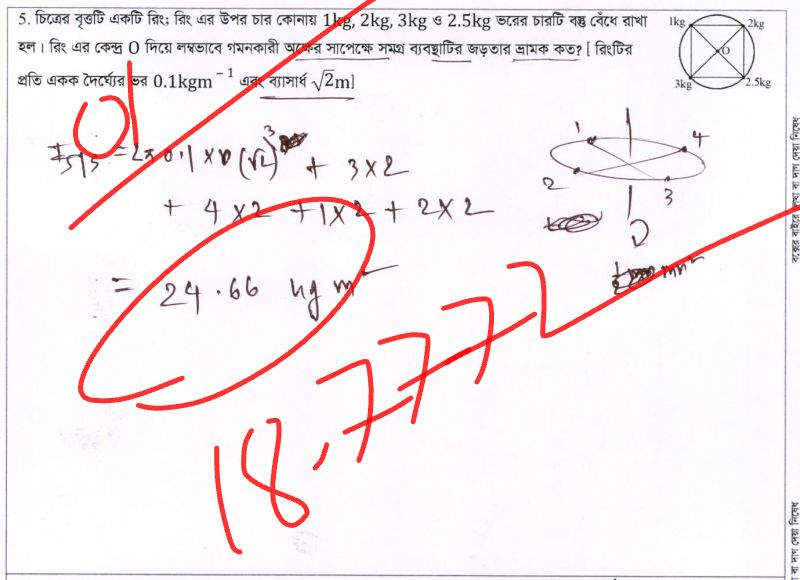 5. চিত্রের বৃত্তটি একটি রিং; রিং এর উপর চার কোনায় 1kg, 2kg, 3kg ও 2.5kg ভরের চারটি বস্তু বেঁধে রাখা
হল। রিং এর কেন্দ্র O দিয়ে লম্বভাবে গমনকারী অক্ষের সাপেক্ষে সমগ্র ব্যবস্থাটির জড়তার ভ্রামক কত? [ রিংটির
প্রতি একক দৈর্ঘ্যের ভর 0.1kgm⁻¹ এবং ব্যাসার্ধ √2m]
1kg 2kg
O
3kg 2.5kg
0
= 2π 0.1 × (√2)³ + 3×2
+ 4×2 + 1×2 + 2×2
= 24.66 kg m²
1 4
2 3
18.7772
বক্সের বাইরে লেখা বা দাগ দেয়া নিষেধ
বা দাগ দেয়া নিষেধ